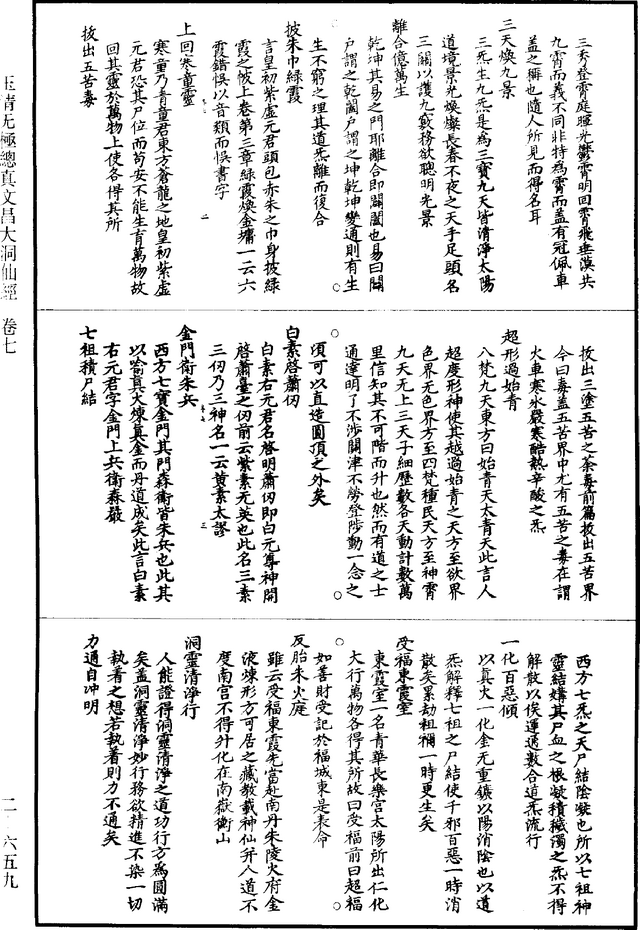 三秀登霄庭暉光鬱霄明回霄飛垂漠共
九霄而義不同非特為霄而蓋有冠佩車
蓋之稱也隨人所見而得名耳
三天煥九景
三炁生九炁是為三寶九天皆清淨太陽
道境景光煥燦長春不夜之天手足頭名
三關以護九竅務欲聰明光景
離合億萬生
乾坤其易之門耶離合即闢闔也易曰闢
戶謂之乾闔戶謂之坤乾坤變通則有生
生不窮之理其道炁離而復合
披朱巾綠霞
言皇初紫虛元君頭包赤朱之巾身披綠
霞之帔上卷第三章綠霞煥金墉一云六
霞錯悞以音類而悞書字
上回寒童靈
寒童乃青童君東方蒼龍之地皇初紫虛
元君恐其尸位而苟安不能生育萬物故
回其靈於萬物上使各得其所
拔出五苦毒
拔出三塗五苦之餘毒前篇拔出五苦界
今曰毒蓋五苦界中尤有五苦之毒在謂
火車寒氷嚴寒酷熱辛酸之炁
超形過始青
八梵九天東方曰始青天太青天此言人
超度形神使其越過始青之天方至欲界
色界无色界方至四梵種民天方至神霄
九天无上三天子細歷數各天動計數萬
里信知其不可階而升也然而有道之士
通達明了不涉關津不勞登陟動一念之
頃可以直造圓頂之外矣
白素啓蕭刃
白素右元君名啓明蕭刃即白元尊神開
啓蕭臺之刃前云紫素元英也此名三素
三刃乃三神名一云黃素太謬
金門衛朱兵
西方七寶金門其門森衛皆朱兵也此其
以喻真火煉真金而丹道成矣此言白素
右元君字金門上兵衛森嚴
七祖積尸結
西方七炁之天尸結陰凝也所以七祖神
靈結媾其尸血之根凝積穢濁之炁不得
解散以俟運通數合道炁流行
一化百惡傾
以真火一化金无重鑛以陽消陰也以道
炁解釋七祖之尸結使千邪百惡一時消
散矣累劫祖禰一時更生矣
受福東霞室
東霞室一名青華長樂宮太陽所出仁化
大行萬物各得其所故曰受福前曰超福
如善財受記於福城東是表命
反胎朱火庭
雖云受福東霞先當赴南丹朱陵火府金
液煉形方可居之藏教載神仙并人道不
度南宮不得升化在南嶽衡山
洞靈清淨行
人能證得洞靈清淨之道功行方為圓滿
矣蓋洞靈清淨妙行務欲精進不染一切
執着之想若執着則力不通矣
力通自冲明
玉清无極總真文昌大洞仙經 卷七
二—六五九